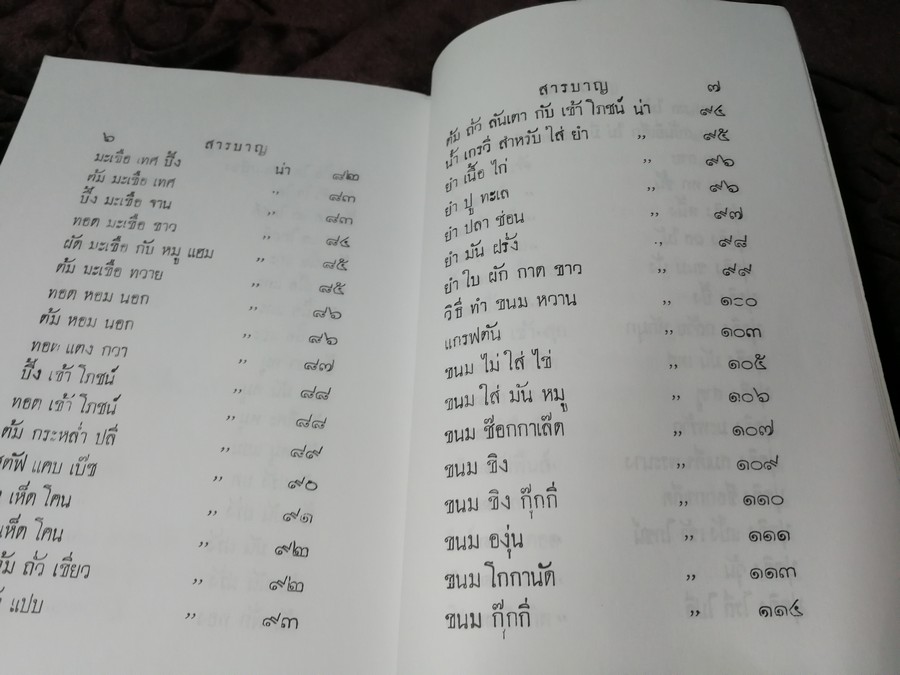 ๖ สารบาญ
มะเขือ เทศ ปิ้ง น่า ๘๒
ต้ม มะเขือ เทศ ” ๘๓
ปิ้ง มะเขือ จาน ” ๘๓
ทอด มะเขือ ขาว ” ๘๔
ผัด มะเขือ กับ หมู แฮม ” ๘๕
ต้ม มะเขือ ทวาย ” ๘๕
ทอด หอม นอก ” ๘๖
ต้ม หอม นอก ” ๘๖
ทอด แตง กวา ” ๘๗
ปิ้ง เข้า โภชน์ ” ๘๘
ทอด เข้า โภชน์ ” ๘๘
ต้ม กระหล่ำ ปลี ” ๘๙
สตัฟ แคบ เบ๊ช ” ๙๐
เห็ด โคน ” ๙๑
เห็ด โคน ” ๙๒
ต้ม ถั่ว เขียว ” ๙๒
แปบ ” ๙๓
สารบาญ ๗
ต้ม ถั่ว ลันเตา กับ เข้า โภชน์ น่า ๙๔
น้ำ เกรวี่ สำหรับ ใส่ ยำ ” ๙๕
ยำ เนื้อ ไก่ ” ๙๖
ยำ ปู ทะเล ” ๙๖
ยำ ปลา ช่อน ” ๙๗
ยำ มัน ฝรั่ง ” ๙๘
ยำ ใบ ผัก กาด ขาว ” ๙๙
วิธี ทำ ขนม หวาน ” ๑๐๐
แกรฟตัน ” ๑๐๓
ขนม ไม่ ใส่ ไข่ ” ๑๐๕
ขนม ใส่ มัน หมู ” ๑๐๖
ขนม ช๊อกกาเล๊ต ” ๑๐๗
ขนม ขิง ” ๑๐๙
ขนม ขิง กุ๊กกี่ ” ๑๑๐
ขนม องุ่น ” ๑๑๑
ขนม โกกานัด ” ๑๑๓
ขนม กุ๊กกี่ ” ๑๑๔